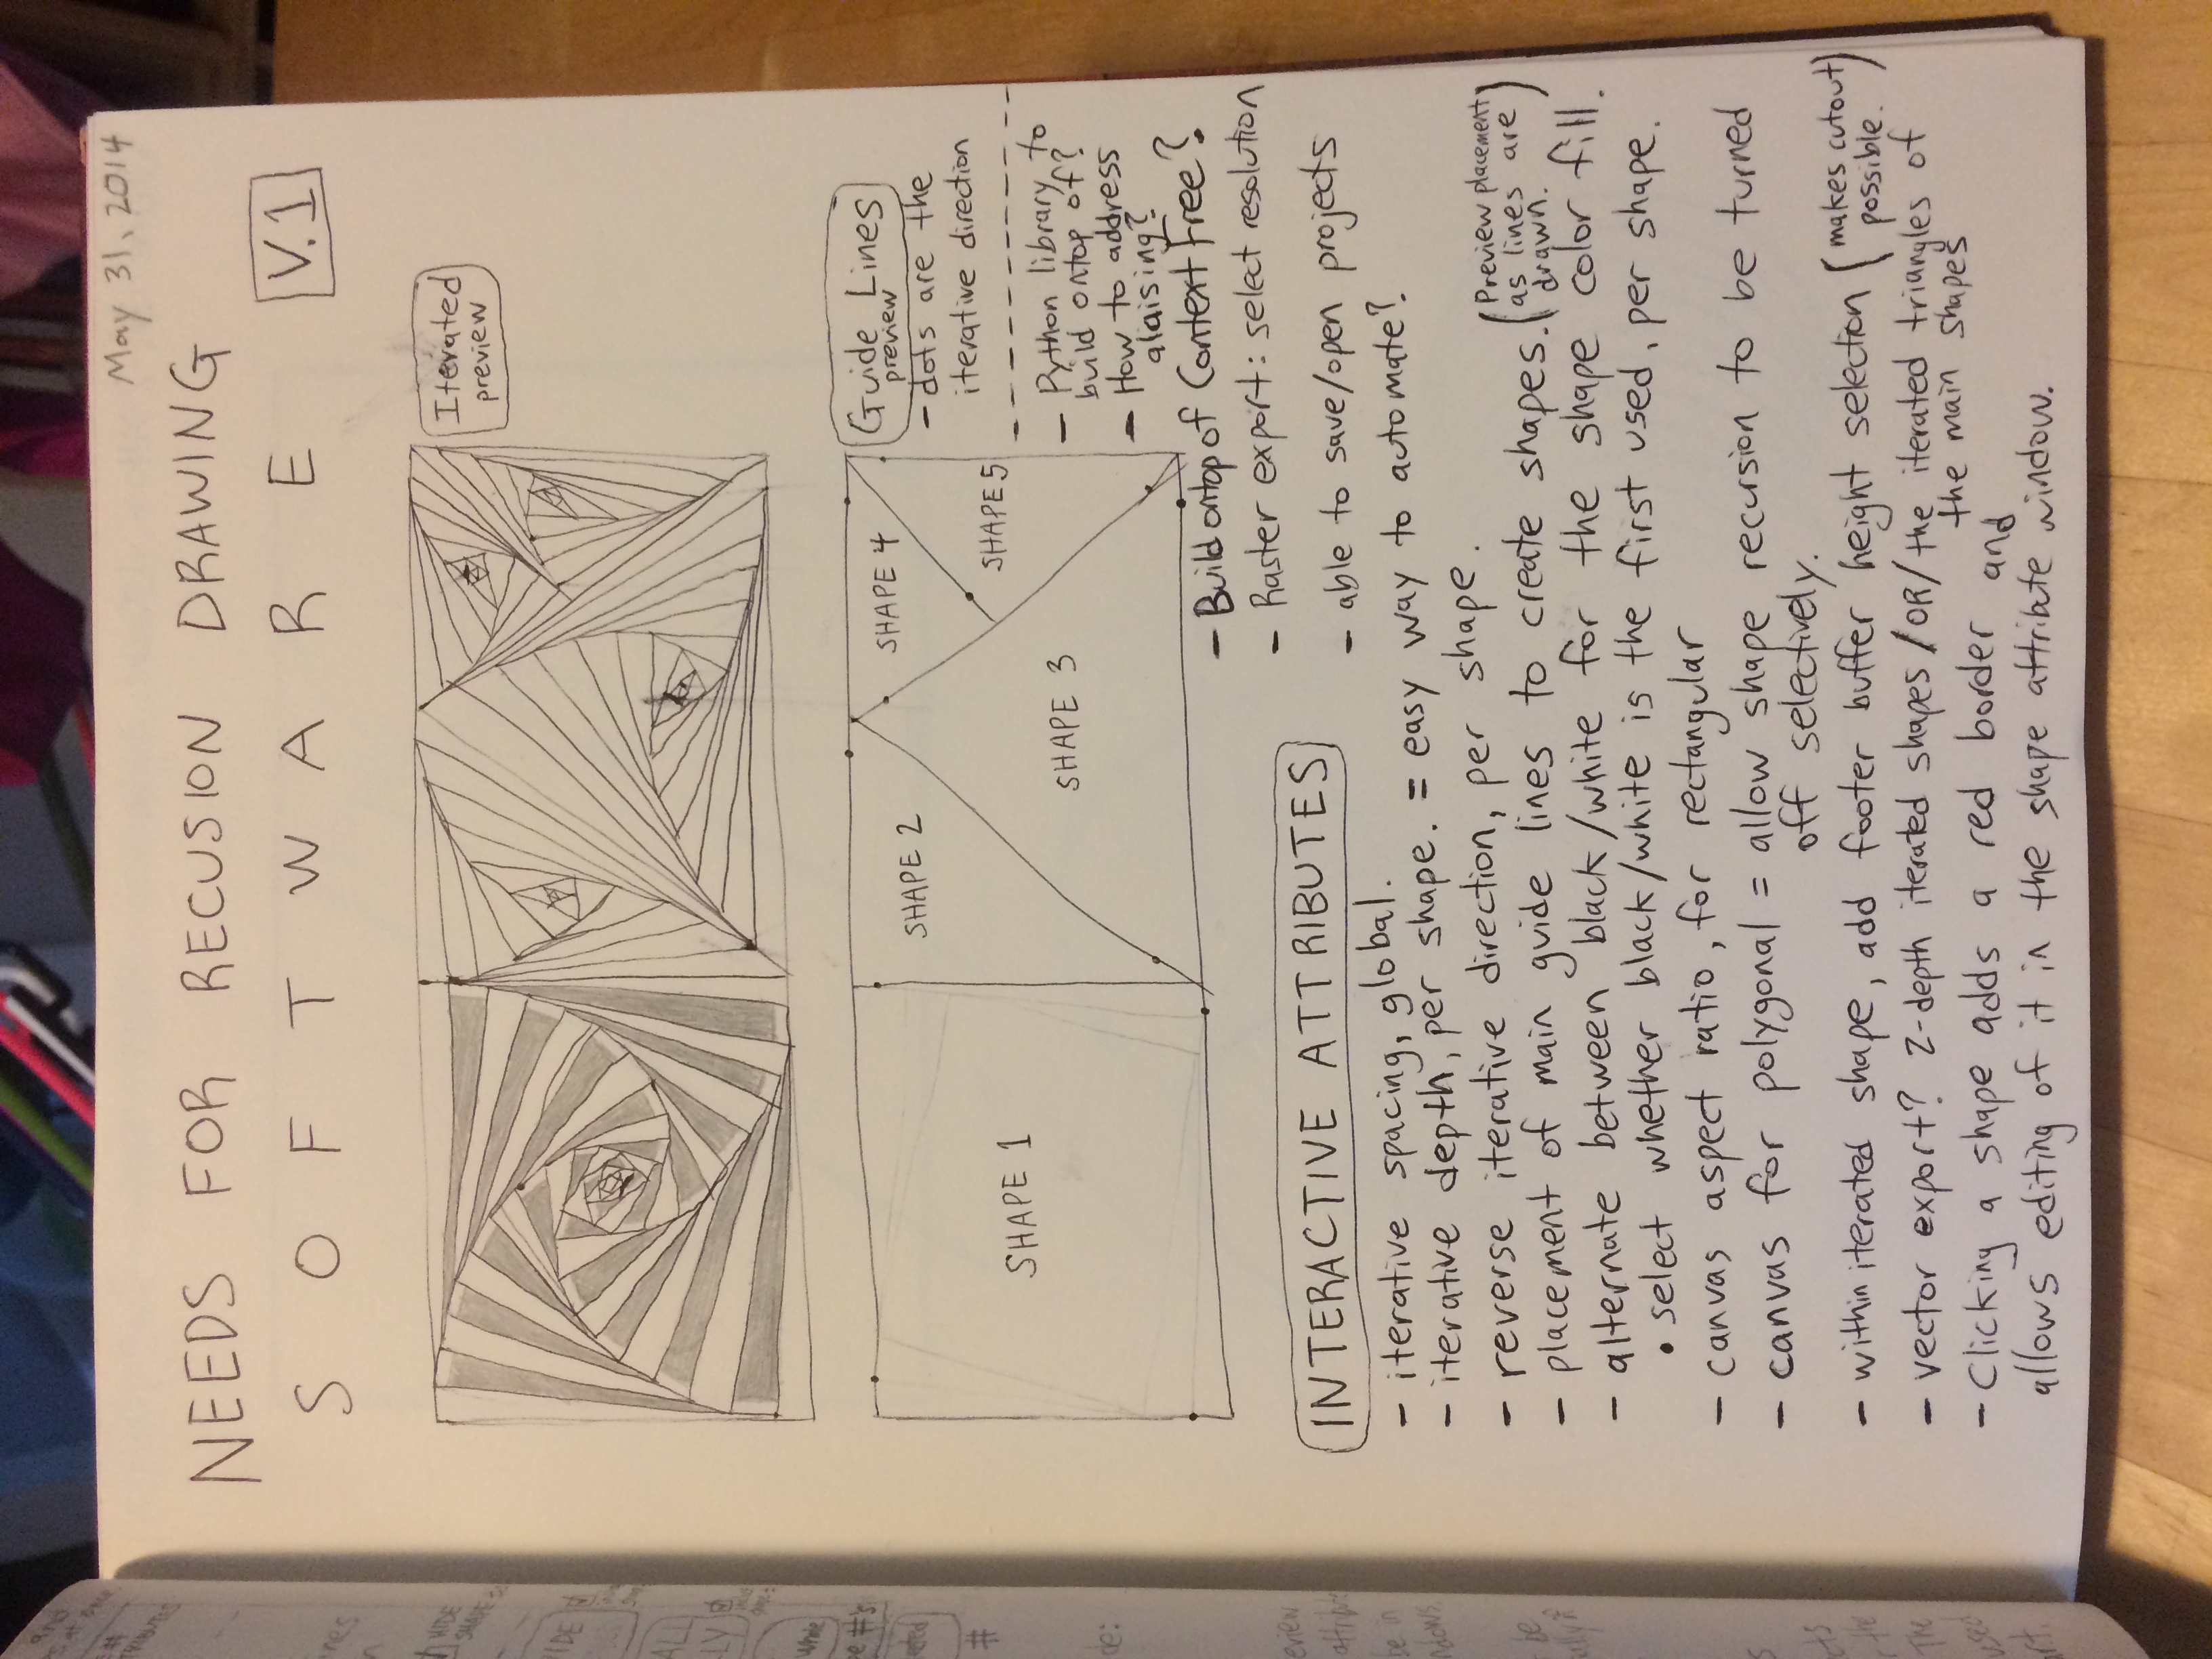 May 31, 2014
NEEDS FOR RECUSION DRAWING
SOFTWARE
V.1
Iterated
preview
Guide Lines
preview
- dots are the
iterative direction
SHAPE 1
SHAPE 2
SHAPE 3
SHAPE 4
SHAPE 5
- Python library to
build ontop of?
- How to address
alaising?
- Build ontop of Context Free?
- Raster export: select resolution
- able to save/open projects
INTERACTIVE ATTRIBUTES
- iterative spacing, global.
- iterative depth, per shape. = easy way to automate?
- reverse iterative direction, per shape.
- placement of main guide lines to create shapes. (Preview placement
as lines are
drawn.)
- alternate between black/white for the shape color fill.
• select whether black/white is the first used, per shape.
- canvas aspect ratio, for rectangular
- canvas for polygonal = allow shape recursion to be turned
off selectively.
- within iterated shape, add footer buffer height selection (makes cutout
possible.)
- vector export? 2-depth iterated shapes /OR/ the iterated triangles of
the main shapes
- Clicking a shape adds a red border and
allows editing of it in the shape attribute window.